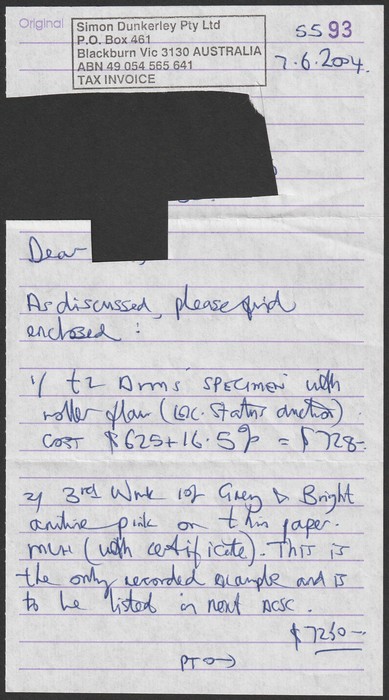 Original
Simon Dunkerley Pty Ltd
P.O. Box 461
Blackburn Vic 3130 AUSTRALIA
ABN 49 054 565 641
TAX INVOICE
SS 93
7.6.2004.
Dear
As discussed, please find
enclosed :
1/ £2 Arms SPECIMEN with
roller flaw (Leic. Status auction)
COST $625+16.5% = $728-
2/ 3rd Wmk 10/- Grey & Bright
aniline pink on thin paper.
MUH (with certificate). This is
the only recorded example and is
to be listed in next ACSC.
$7250-
PTO→